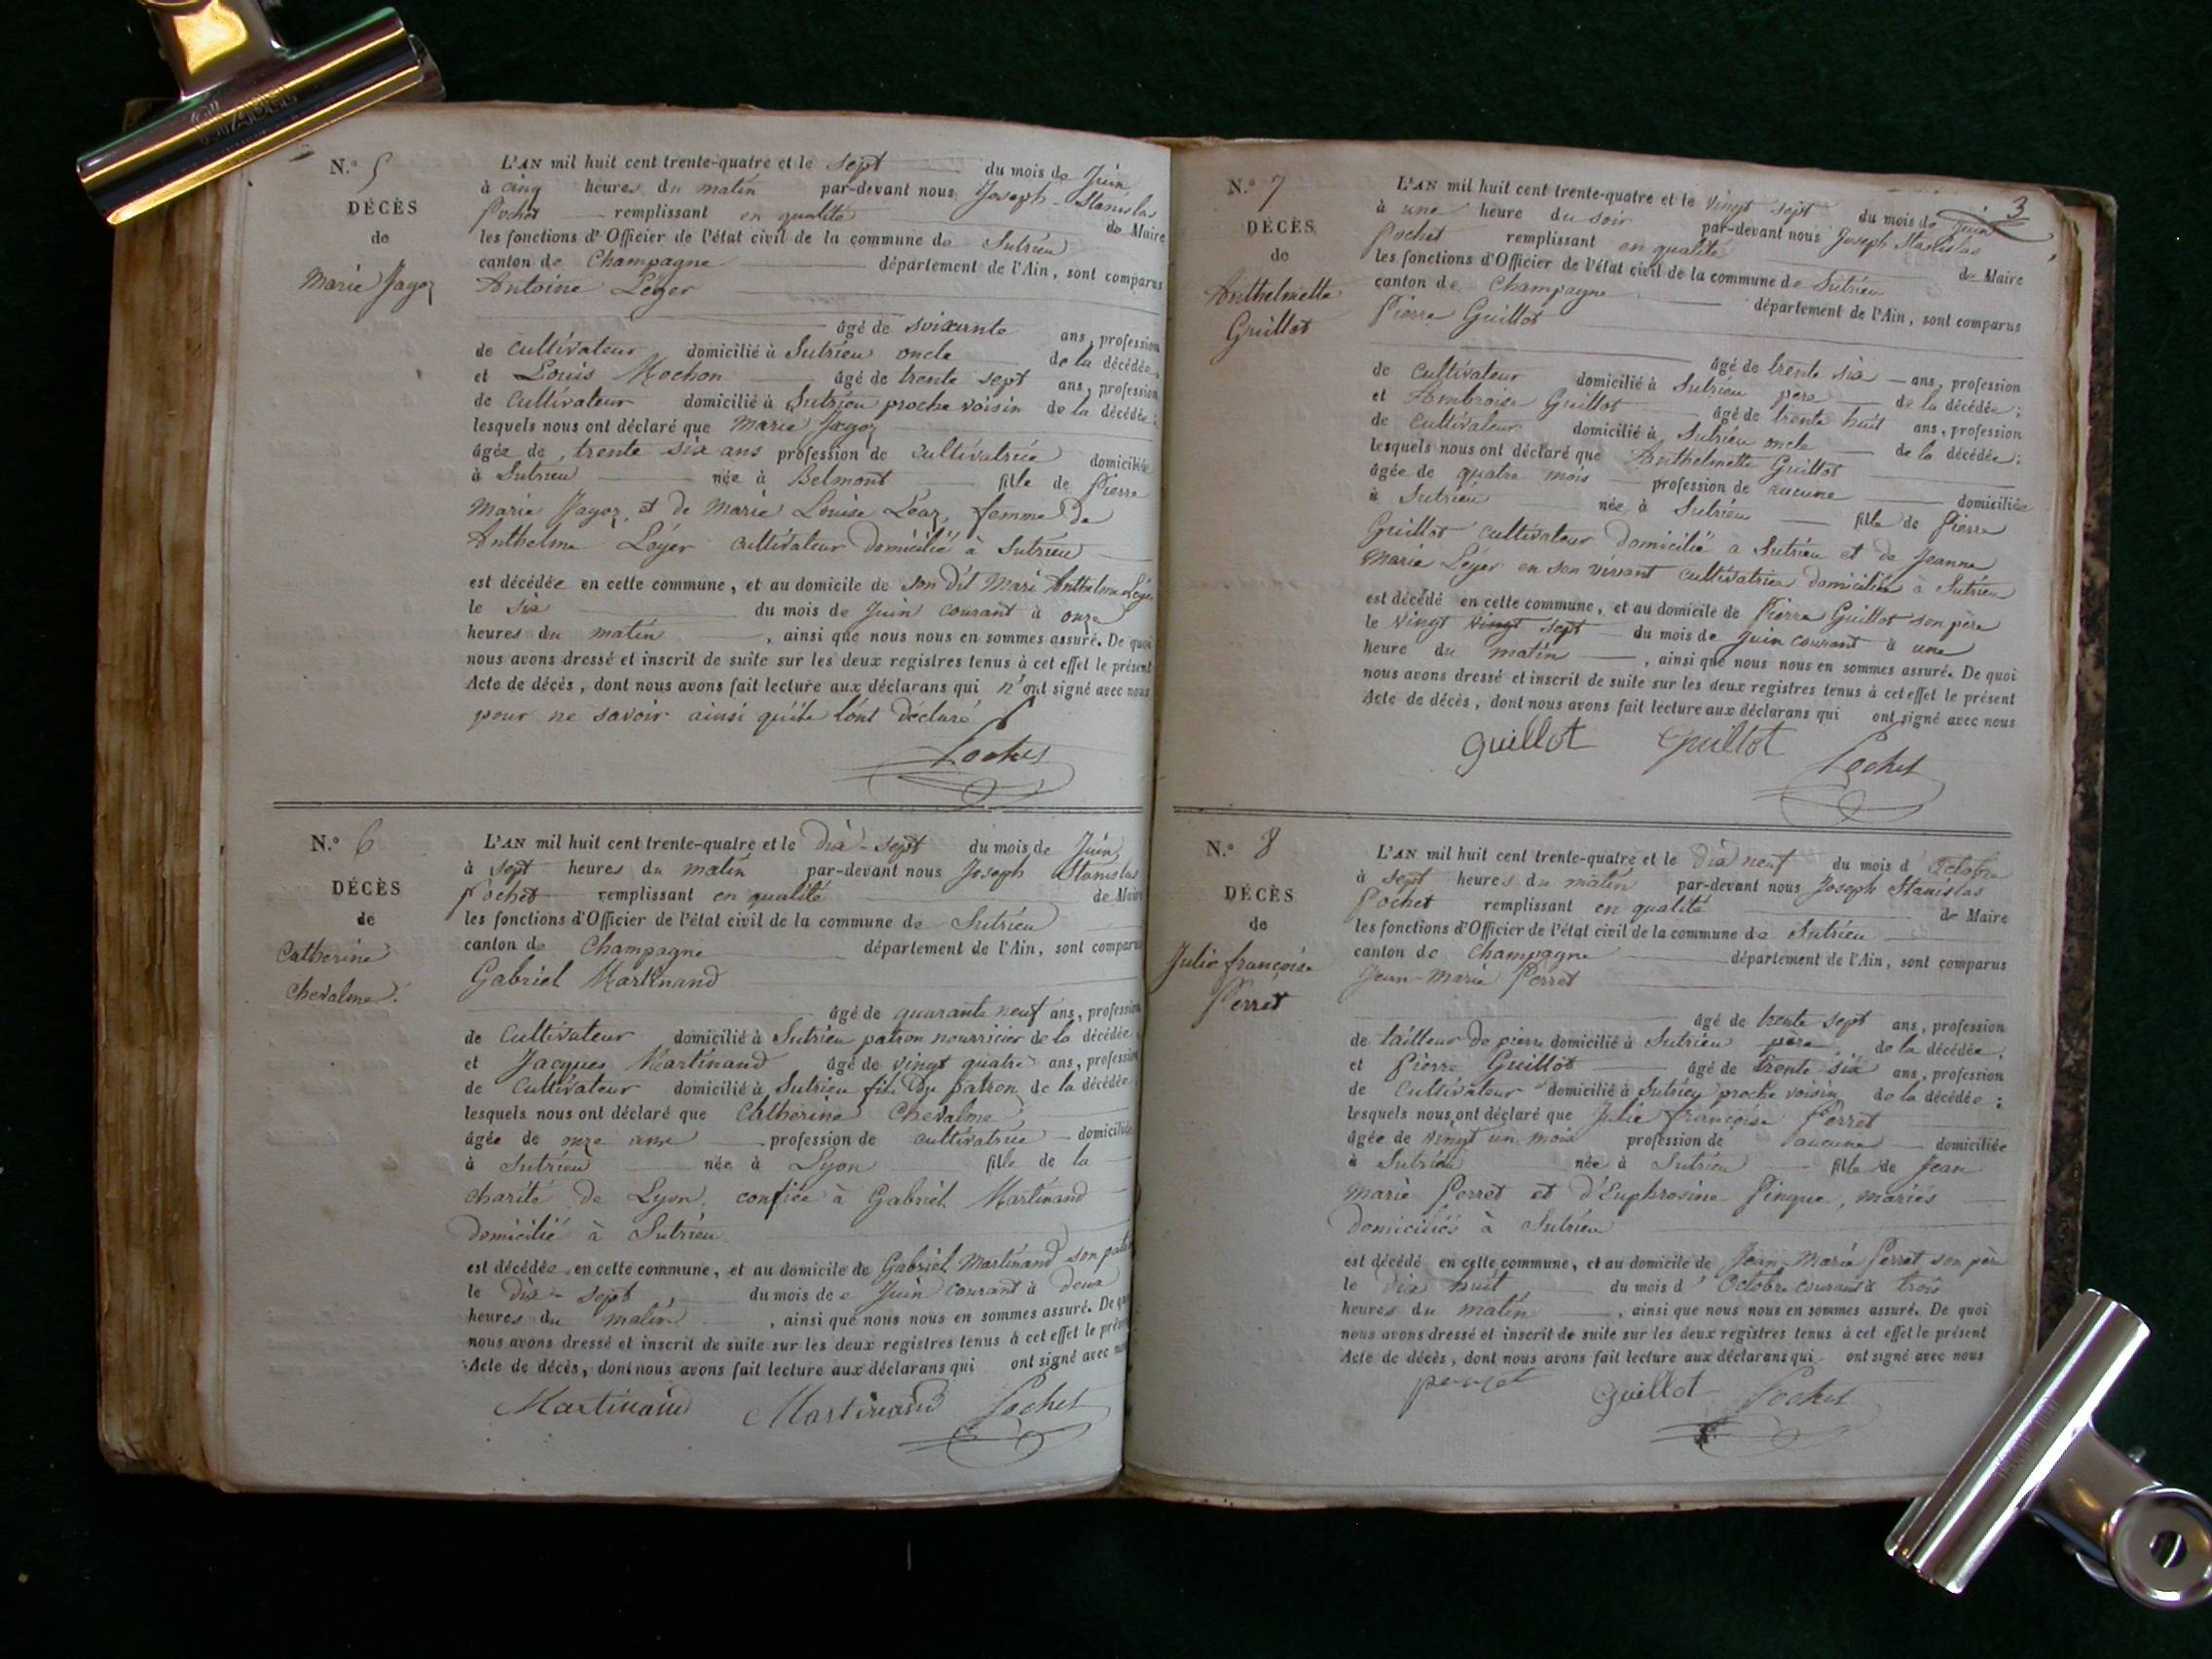 N.° 5
DÉCÈS
de
Marie Jagoz
L'AN mil huit cent trente-quatre et le sept du mois de Juin
à cinq heures du matin par-devant nous Joseph-Stanislas
Pochet remplissant en qualité de Maire
les fonctions d'Officier de l'état civil de la commune de Sutrieu
canton de Champagne département de l'Ain, sont comparus
Antoine Leyer
âgé de soixante ans, profession
de cultivateur domicilié à Sutrieu oncle de la décédée,
et Louis Mochon âgé de trente sept ans, profession
de cultivateur domicilié à Sutrieu proche voisin de la décédée;
lesquels nous ont déclaré que Marie Jagoz
âgée de trente six ans profession de cultivatrice domiciliée
à Sutrieu née à Belmont fille de Pierre
Marie Jagoz, et de Marie Louise femme de
Anthelme Léyer cultivateur domicilié à Sutrieu
est décédée en cette commune, et au domicile de son dit Mari Anthelme Léyer
le six du mois de Juin courant à onze
heures du matin, ainsi que nous nous en sommes assuré. De quoi
nous avons dressé et inscrit de suite sur les deux registres tenus à cet effet le présent
Acte de décès, dont nous avons fait lecture aux déclarans qui n'ont signé avec nous
pour ne savoir ainsi qu'ils l'ont déclaré
Pochet
N.° 6
DÉCÈS
de
Catherine
Chevalme.
L'AN mil huit cent trente-quatre et le Dix-sept du mois de Juin
à sept heures du matin par-devant nous Joseph Stanislas
Pochet remplissant en qualité de Maire
les fonctions d'Officier de l'état civil de la commune de Sutrieu
canton de Champagne département de l'Ain, sont comparus
Gabriel Martinand
âgé de quarante neuf ans, profession
de Cultivateur domicilié à Sutrieu patron nourricier de la décédée,
et Jacques Martinand âgé de vingt quatre ans, profession
de Cultivateur domicilié à Sutrieu fils du patron de la décédée
lesquels nous ont déclaré que Catherine Chevalme
âgée de onze ans profession de cultivatrice domiciliée
à Sutrieu née à Lyon fille de la
charité de Lyon, confiée à Gabriel Martinand
domicilié à Sutrieu
est décédée en cette commune, et au domicile de Gabriel Martinand son patron
le dix-sept, du mois de Juin courant à deux
heures du matin, ainsi que nous nous en sommes assuré. De quoi
nous avons dressé et inscrit de suite sur les deux registres tenus à cet effet le présent
Acte de décès, dont nous avons fait lecture aux déclarans qui ont signé avec nous
Martinand Martinand Pochet
3
N.° 7
DÉCÈS
de
Anthelmette
Guillot
L'AN mil huit cent trente-quatre et le vingt sept du mois de Juin
à une heure du soir par-devant nous Joseph Stanislas
Pochet remplissant en qualité de Maire
les fonctions d'Officier de l'état civil de la commune de Sutrieu
canton de Champagne département de l'Ain, sont comparus
Pierre Guillot
âgé de trente six ans, profession
de cultivateur domicilié à Sutrieu père de la décédée;
et Ambroise Guillot âgé de trente huit ans, profession
de cultivateur domicilié à Sutrieu oncle de la décédée;
lesquels nous ont déclaré que Anthelmette Guillot
âgée de quatre mois profession de aucune domiciliée
à Sutrieu née à Sutrieu fille de Pierre
Guillot cultivateur domicilié à Sutrieu et de Jeanne
Marie Léyer en son vivant cultivatrice domiciliée à Sutrieu
est décédé en cette commune, et au domicile de Pierre Guillot son père
le vingt vingt sept du mois de juin courant à une
heure du matin, ainsi que nous nous en sommes assuré. De quoi
nous avons dressé et inscrit de suite sur les deux registres tenus à cet effet le présent
Acte de décès, dont nous avons fait lecture aux déclarans qui ont signé avec nous
Guillot Guillot Pochet
N.° 8
DÉCÈS
de
Julie françoise
Perret
L'AN mil huit cent trente-quatre et le dix neuf du mois d'Octobre
à sept heures du matin par-devant nous Joseph Stanislas
Pochet remplissant en qualité de Maire
les fonctions d'Officier de l'état civil de la commune de Sutrieu
canton de Champagne département de l'Ain, sont comparus
Jean-Marie Perret
âgé de trente sept ans, profession
de tailleur de pierre domicilié à Sutrieu père de la décédée,
et Pierre Guillot âgé de trente six ans, profession
de Cultivateur domicilié à Sutrieu proche voisin de la décédée;
lesquels nous ont déclaré que Julie françoise Perret
âgée de vingt un mois profession de aucune domiciliée
à Sutrieu née à Sutrieu fille de Jean
Marie Perret et d'Euphrosine Pingue, mariés
domiciliés à Sutrieu
est décédé en cette commune, et au domicile de Jean-Marie Perret son père
le dix huit du mois d'Octobre courant à trois
heures du matin, ainsi que nous nous en sommes assuré. De quoi
nous avons dressé et inscrit de suite sur les deux registres tenus à cet effet le présent
Acte de décès, dont nous avons fait lecture aux déclarans qui ont signé avec nous
perret Guillot Pochet